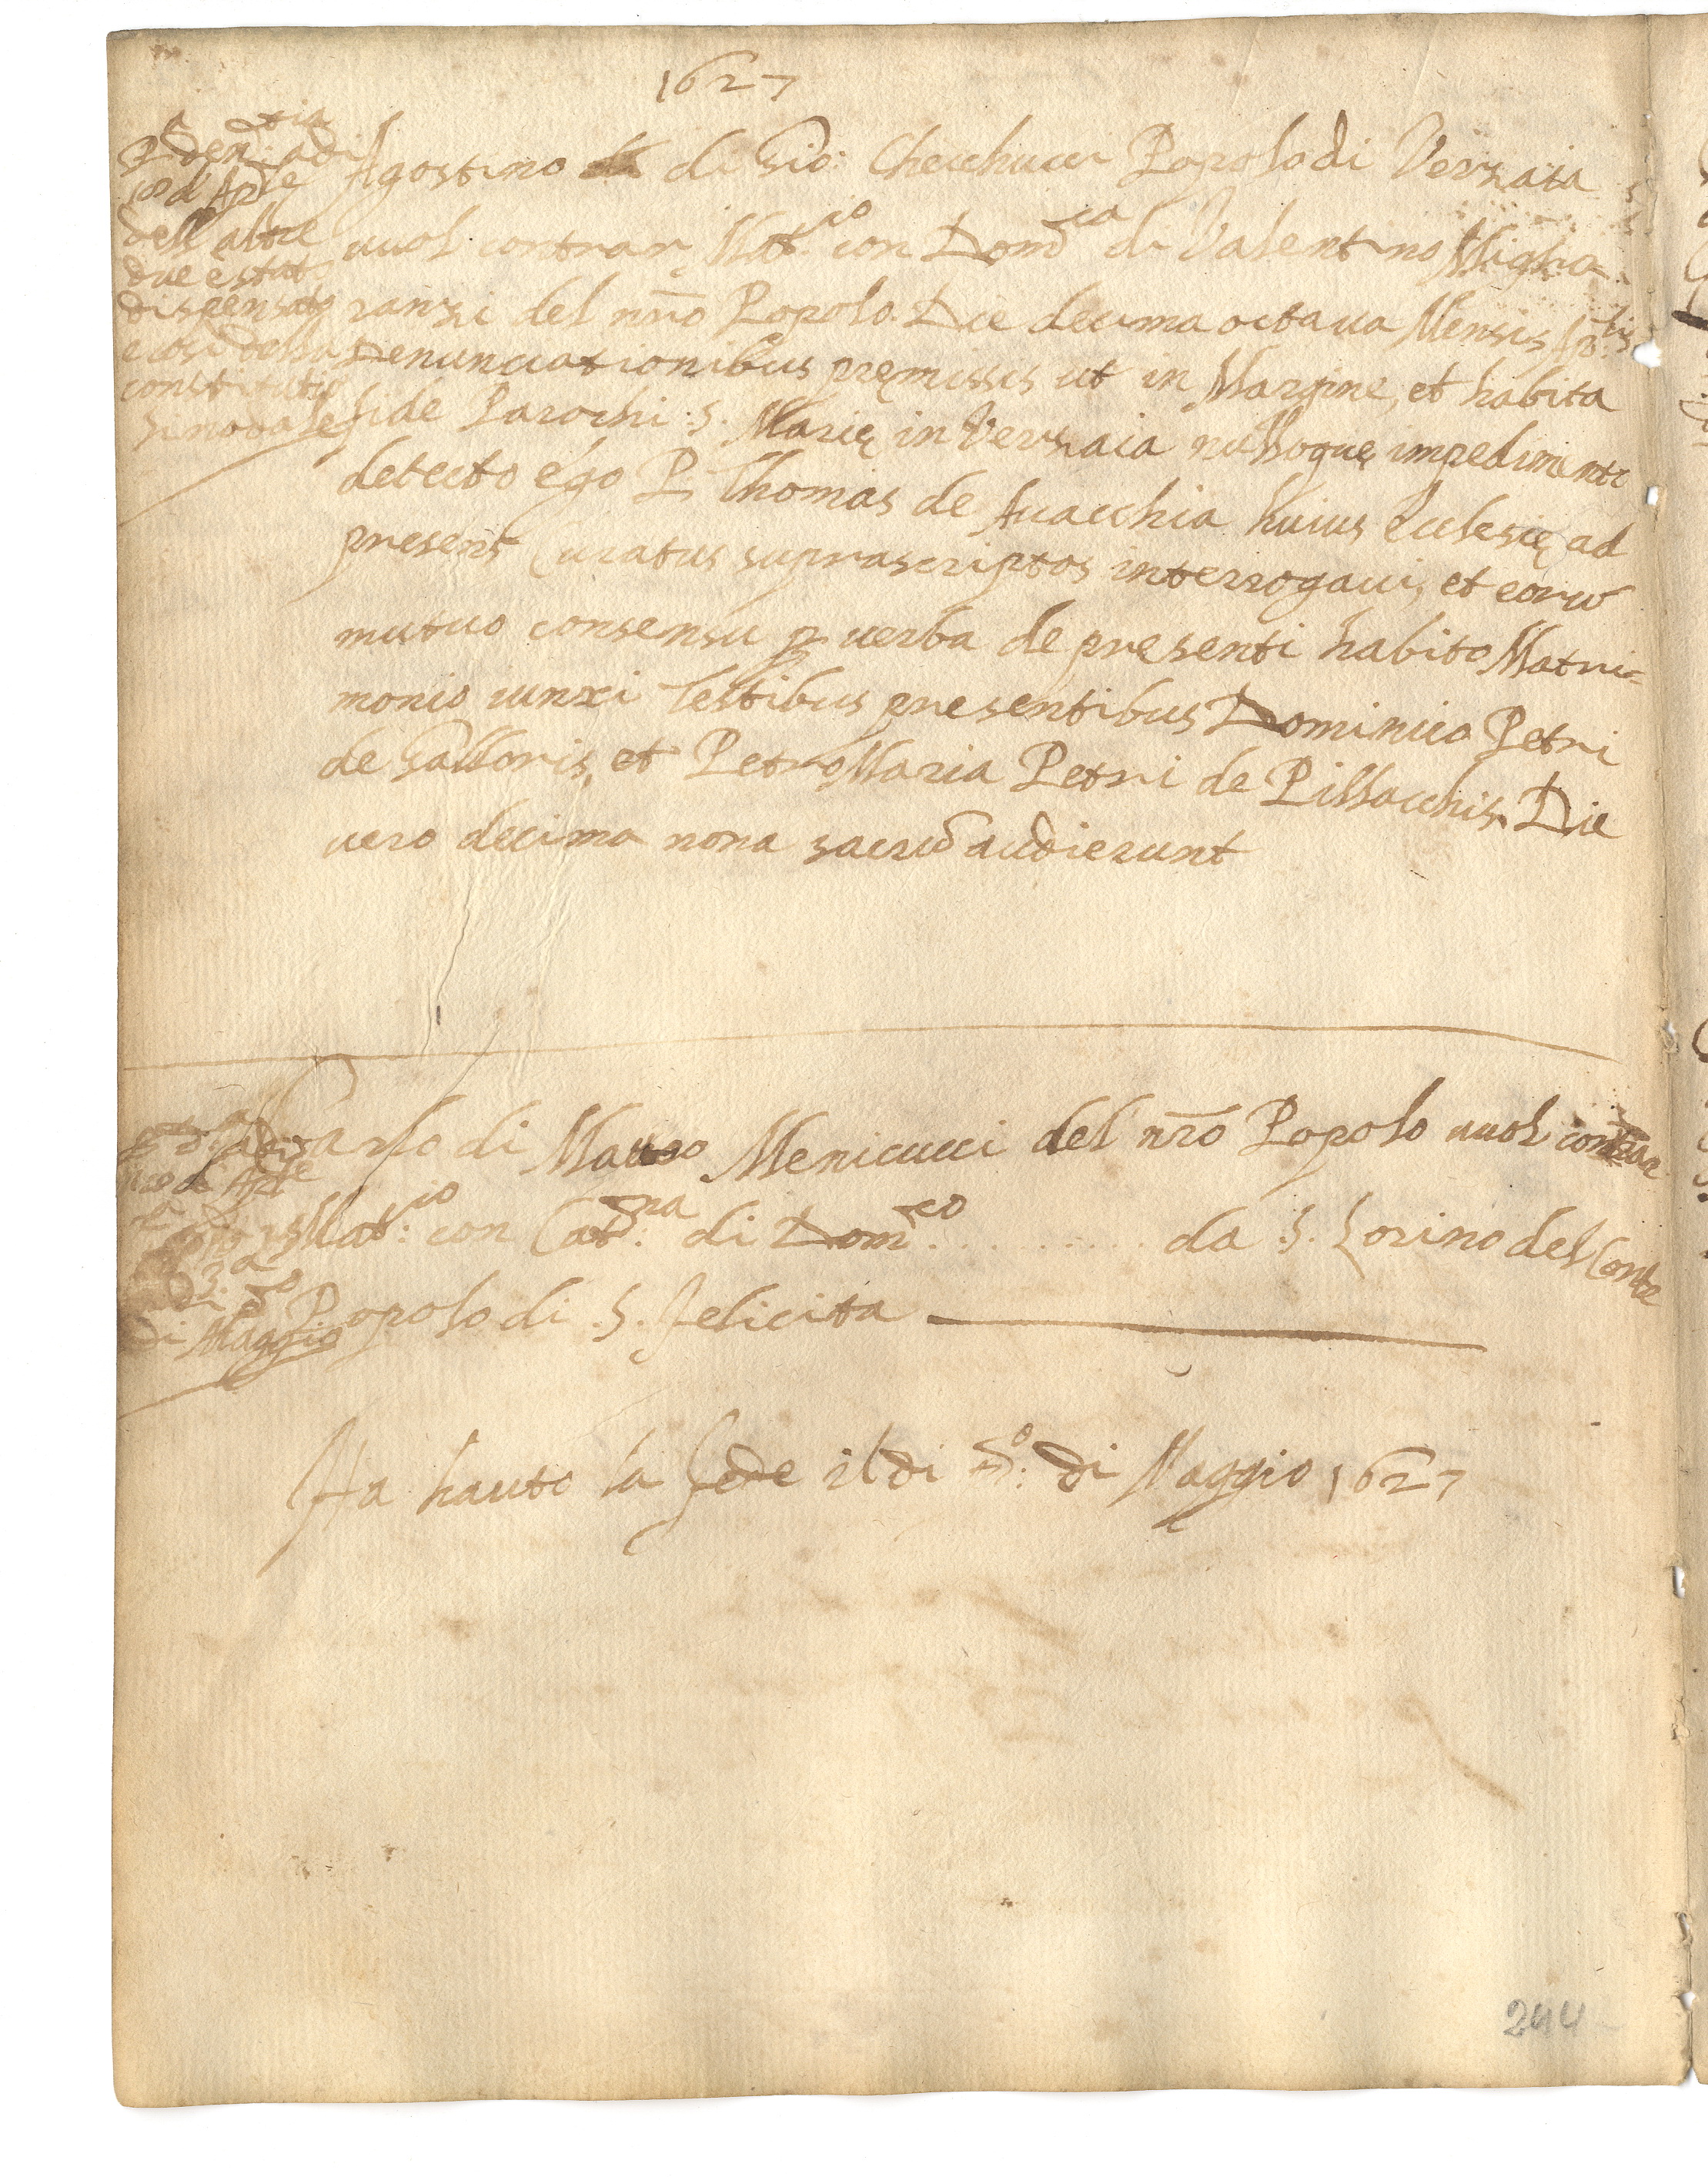 1627
P.ª den.tia adi
18 d'Aprile
dell'altre
due è stato
dispensato
e così della
constitutio
Sinodale
Agostino di Gio: Checchucci Popolo di Verzaia
vuol contrar Mat.io con Dom.ca di Valentino Miglio-
ranzi del nro Popolo. Die decima octaua Mensis Ap.lis
Denunciationibus pręmissis ut in Margine, et habita
fide Parochi S. Marię in Verzaia nulloque impedimento
detecto ego P. Thomas de Auacchia huius Ecclesię ad
presens Curatus suprascriptos interrogaui, et eorũ
mutuo consensu p uerba de presenti habito Matri=
monio iunxi Testibus presentibus Dominico Petri
de Galloris, et Petro Maria Petri de Pillacchis. Die
uero decima nona sacrũ audierunt
di Aple
3.ª
di Maggio
Carlo di Mauro Menicucci del nrõ Popolo vuol contrar
Mat:io con Cat.na di Dom.co . . . . . . . . da S. Lorino del Conte
Popolo di S. Felicita
Ha hauto la fede il di p.º: di Maggio 1627
244